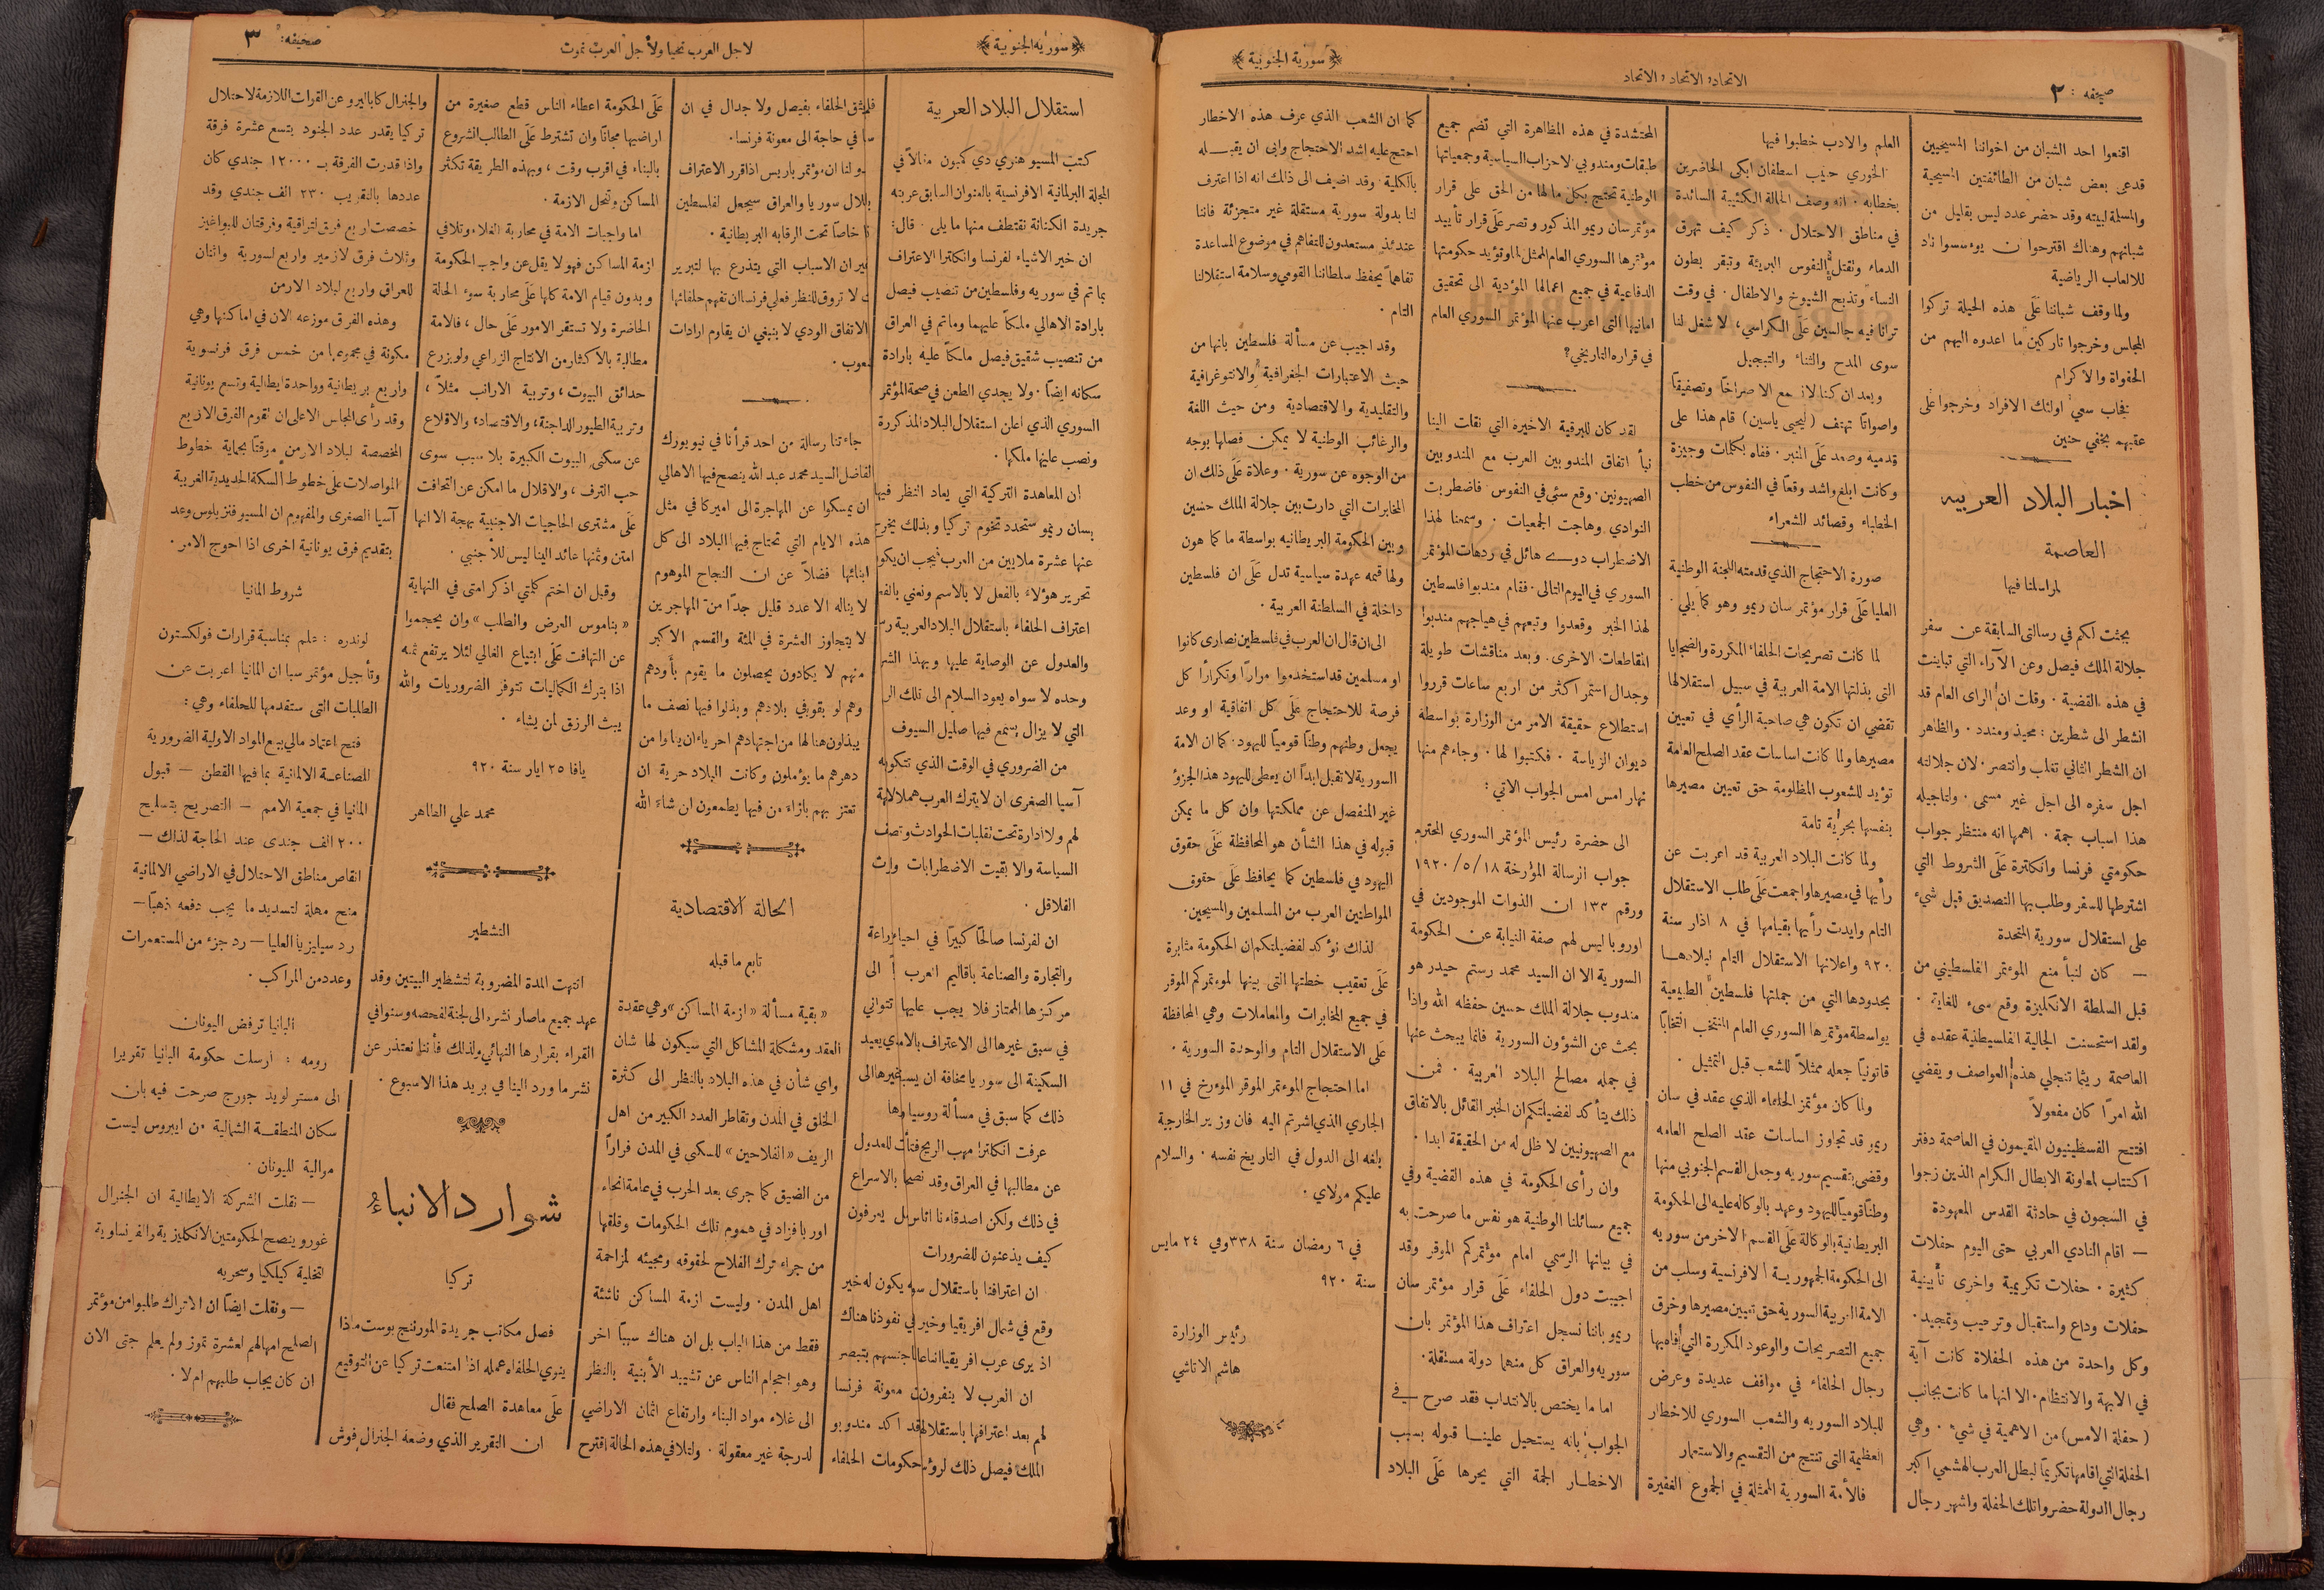 صحيفه : ٢
الاتحاد، الاتحاد، الاتحاد
﴿ سورية الجنوبية ﴾
اقنعوا احد الشبان من اخواننا المسيحيين
قدعى بعض شبان من الطائفتين المسيحية
والمسلمة لبيته وقد حضر عدد ليس بقليل من
شبانهم وهناك اقترحوا ان يوءسسوا ناد
للالعاب الرياضية
ولما وقف شباننا على هذه الحيلة تركوا
المجلس وخرجوا تاركين ما اعدوه اليهم من
الحفاوة والاكرام
فخاب سعي اولئك الافراد وخرجوا على
عقبهم بخفي حنين
اخبار البلاد العربيه
العاصمة
لمراسلنا فيها
بحثت لكم في رسالتي السابقة عن سفر
جلالة الملك فيصل وعن الآراء التي تباينت
في هذه القضية . وقلت ان الراى العام قد
انشطر الى شطرين : محبذ ومندد . والظاهر
ان الشطر الثاني تغلب وانتصر . لان جلالته
اجل سفره الى اجل غير مسمى . ولتاجيله
هذا اسباب جمة . اهمها انه منتظر جواب
حكومتي فرنسا وانكلترة على الشروط التي
اشترطها للسفر وطلب بها التصديق قبل شيء
على استقلال سورية المتحدة
— كان لنبأ منع الموءتمر الفلسطيني من
قبل السلطة الانكليزة وقع سيء للغاية .
ولقد استحسنت الجالية الفلسيطنية عقده في
العاصمة ريثما تنجلي هذه العواصف ويقضي
الله امرًا كان مفعولاً
افتتح الفسطينيون المقيمون في العاصمة دفتر
اكتتاب لمعاونة الابطال الكرام الذين زجوا
في السجون في حادثة القدس المعهودة
— اقام النادي العربي حتى اليوم حفلات
كثيرة . حفلات تكريمية واخرى تأبينية
حفلات وداع واستقبال وترحيب وتمجيد .
وكل واحدة من هذه الحفلاة كانت آية
في الابهة والانتظام . الا انها ما كانت بجانب
( حفلة الامس ) من الاهمية في شيء . وهي
الحفلة التي اقامها تكريمًا لبطل العرب الهشمي اكبر
رجال الدولة حضروا تلك الحفلة واشهر رجال
العلم والادب خطبوا فيها
الخوري حبيب اسطفان ابكى الحاضرين
بخطابه . انه وصف الحالة الكئيبة السائدة
في مناطق الاحتلال . ذكر كيف تهرق
الدماء وتقتل النفوس البريئة وتبقر بطون
النساء وتذبح الشيوخ والاطفال . في وقت
ترانا فيه جالسين على الكراسي، لا شغل لنا
سوى المدح والثناء والتبجيل
وبعد ان كنا لا نسمع الا صراخًا وتصفيقًا
واصواتًا تهتف ( ليحيى ياسين ) قام هذا على
قدميه وصعد على المنبر . ففاه بكلمات وجيزة
وكانت ابلغ واشد وقعًا في النفوس من خطب
الخطباء وقصائد الشعراء
صورة الاحتجاج الذي قدمته اللجنة الوطنية
العليا على قرار مؤتمر سان ريمو وهو كما يلي .
لما كانت تصريحات الحلفاء المكررة والضحايا
التي بذلتها الامة العربية في سبيل استقلالها
تقضي ان تكون هي صاحبة الرأي في تعيين
مصيرها ولما كانت اساسات عقد الصلح العامة
تؤيد للشعوب المظلومة حق تعيين مصيرها
بنفسها بحرية تامة
ولما كانت البلاد العربية قد اعربت عن
رأيها في مصيرها واجمعت على طلب الاستقلال
التام وايدت رأيها بقيامها في ٨ اذار سنة
٩٢٠ واعلانها الاستقلال التام لبلادهـا
بحدودها التي من جملتها فلسطين الطبيعية
بواسطة مؤتمرها السوري العام المنتخب انتخابًا
قانونيًا جعله ممثلاً للشعب قبل التمثيل .
ولما كان مؤتمز الحلفاء الذي عقد في سان
ريمو قد تجاوز اساسات عقد الصلح العامه
وقضى بتقسيم سوريه وجعل القسم الجنوبي منها
وطنًا قوميًا لليهود وعهد بالوكاله عليه الى الحكومة
البريطانية بالوكالة على القسم الاخر من سوريه
الى الحكومة الجمهورية الافرنسية وسلب من
الامة العربية السورية حق تعيين مصيرها وخرق
جميع التصريحات والوعود المكررة التي أفاه بها
رجال الحلفاء في مواقف عديدة وعرض
للبلاد السوريه والشعب السوري للاخطار
العظيمة التي تنتج من التقسيم والاستعمار
فالأمة السورية الممثلة في الجموع الغفيرة
المحتشدة في هذه المظاهرة التي تضم جميع
طبقات ومندوبي الاحزاب السياسية وجمعياتها
الوطنية تحتج بكل ما لها من الحق على قرار
مؤتمر سان ريمو المذكور وتصر على قرار تأييد
مؤتمرها السوري العام الممثل لها وتؤيد حكومتها
الدفاعية في جميع اعمالها المؤدية الى تحقيق
امانيها التي اعرب عنها المؤتمر السوري العام
في قراره التاريخي؟
لقد كان للبرقية الاخيرة التي نقلت الينا
نبأ اتفاق المندوبين العرب مع المندوبين
الصهيونين . وقع سئ في النفوس فاضطربت
النوادي وهاجت الجمعيات . وسمعنا لهذا
الاضطراب دوي هائل في ردهات المؤتمر
السوري في اليوم التالى . فقام مندبوا فلسطين
لهذا الخبر وقعدوا وتبعهم في هياجهم مندبوا
المقاطعات الاخرى . وبعد مناقشات طويلة
وجدال استمر اكثر من اربع ساعات قرروا
استطلاع حقيقة الامر من الوزارة بواسطة
ديوان الرئاسة . فكتبوا لها . وجاءهم منها
نهار امس امس الجواب الاتي :
الى حضرة رئيس المؤتمر السوري المحترم
جواب الرسالة المؤرخة ١٨/ ٥/ ١٩٢٠
ورقم ١٣٣ ان الذوات الموجودين في
اوروبا ليس لهم صفة النيابة عن الحكومة
السورية الا ان السيد محمد رستم حيدر هو
مندوب جلالة الملك حسين حفظه الله واذا
بحث عن الشؤون السورية فانما يبحث عنها
في جمله مصالح البلاد العربية . فمن
ذلك يتأكد لفضيلتكم ان الخبر القائل بالاتفاق
مع الصهيونيين لا ظل له من الحقيقة ابدا .
وان رأى الحكومة في هذه القضية وفي
جميع مسائلنا الوطنية هو نفس ما صرحت به
في بيانها الرسمي امام مؤتمركم الموقر وقد
اجيبت دول الحلفاء على قرار مؤتمر سان
ريمو باننا نسجل اعتراف هذا المؤتمر بان
سوريه والعراق كل منهما دولة مستقلة .
اما ما يختص بالانتداب فقد صرح في
الجواب بانه يستحيل علينـا قبوله بسبب
الاخطـار الجمة التي يجرها على البلاد
كما ان الشعب الذي عرف هذه الاخطار
احتج عليه اشد الاحتجاج وابى ان يقبـله
بالكلية وقد اضيف الى ذالك انه اذا اعترف
لنا بدولة سورية مستقلة غير متجزئة فاننا
عندئذ مستعدون للتفاهم في موضوع المساعدة
تفاهمًا يحفظ سلطاننا القومي وسلامة استقلالنا
التام .
وقد اجيب عن مسألة فلسطين بانها من
حيث الاعتبارات الجغرافية والانتوغرافية
والتقليدية والاقتصادية ومن حيث اللغة
والرغائب الوطنية لا يمكن فصلها بوجه
من الوجوه عن سورية . وعلاة على ذلك ان
المخابرات التي دارت بين جلالة الملك حسين
وبين الحكومة البريطانيه بواسطة ما كماهون
ولها قيمه عهدة سياسية تدل على ان فلسطين
داخلة في السلطنة العربية .
الى ان قال ان العرب في فلسطين نصارى كانوا
او مسلمين قد استخدموا مرارًا وتكرارًا كل
فرصة للاحتجاج على كل اتفاقية او وعد
يجعل وطنهم وطنًا قوميًا لليهود . كما ان الامة
السورية لا تقبل ابدًا ان يعطى لليهود هذا الجزؤ
غير المنفصل عن مملكتها وان كل ما يمكن
قبوله في هذا الشأن هو المحافظة على حقوق
اليهود في فلسطين كما يحافظ على حقوق
المواطنين العرب من المسلمين والمسيحين .
لذلك نؤكد لفضيلتكم ان الحكومة مثابرة
على تعقيب خطتها التي بينها لموءتمركم الموقر
في جميع المخابرات والمعاملات وهي المحافظة
على الاستقلال التام والوحدة السورية .
اما احتجاج الموءتمر الموقر الموءرخ في ١١
الجاري الذي اشرتم اليه فان وزير الخارجية
بلغه الى الدول في التاريخ نفسه . والسلام
عليكم مولاي .
في ٦ رمضان سنة ٣٣٨ وفي ٢٤ مايس
سنة ٩٢٠
رئيس الوزارة
هاشم الاتاشي
﴿ سوريه الجنوبية ﴾
لاجل العرب نحيا ولأجل العرب نموت
صحيفه: ٣
استقلال البلاد العربية
كتب المسيو هنري دي كبون مقالاً في
المجلة البرلمانية الافرنسية بالعنوان السابق عربته
جريدة الكنانة نقتطف منها ما يلي . قال :
ان خير الاشياء لفرنسا وانكلترا الاعتراف
بما تم في سوريه وفلسطين من تنصيب فيصل
بارادة الاهالي ملكًا عليهما وما تم في العراق
من تنصيب شقيق فيصل ملكًا عليه بارادة
سكانه ايضًا . ولا يجدي الطعن في صحة المؤتمر
السوري الذي اعلن استقلال البلاد المذكورة
ونصب عليها ملكها .
ان المعاهدة التركية التي يعاد النظر فيها
بسان ريمو ستحدد تخوم تركيا وبذلك يخرج
عنها عشرة ملايين من العرب يجب ان يكو
تحرير هؤلاء بالفعل لا بالاسم ونعني بالفعـ
اعتراف الحلفاء باستقلال البلاد العربية
والعدول عن الوصاية عليها وبهذا
وحده لا سواه يعود السلام الى تلك
التي لا يزال يسمع فيها صليل السيوف
من الضروري في الوقت الذي تتكون
آسيا الصغرى ان لا يترك العرب هملا لانهم
لهم ولا ادارة تحت تقلبات الحوادث
السياسة والا بقيت الاضطرابات
القلاقل .
ان لفرنسا صالحًا كبيرًا في احياء
والتجارة والصناعة باقاليم العرب الى
مركزها الممتاز فلا يجب عليها تتوانى
في سبق غيرها الى الاعتراف بالا يعيد
السكينة الى سوريا مخافة ان يسبـ غيرها الى
ذلك كما سبق في مسألة روسيا
عرفت انكلترا مهب الريح للعدول
عن مطالبها في العراق وقد بالاسراع
في ذلك ولكن اصدقاءنا يعرفون
كيف يذعنون للضرورات
ان اعترافنا باستقلال يكون له خير
وقع في شمال افريقيا وخير نفوذنا هناك
اذ يرى عرب افريقيا اجنسهم بتبصر
ان العرب لا ينفرون معونة فرنسا
لهم بعد اعترافها باستقلالها قد اكد مندوبو
الملك فيصل ذلك حكومات الحلفاء
الحلفاء بفيصل ولا جدال في ان
في حاجة الى معونة فرنسا .
لنا ان مؤتمر باريس اذا قرر الاعتراف
سوريا والعراق سيجعل لفلسطين
خاصًا تحت الرقابه البريطانية .
ان الاسباب التي يتذرع بها لتبرير
لا تروق للنظر فعلى فرنسا ان تفهم حلفائها
الاتفاق الودي لا ينبغي ان يقاوم ارادات
جاءتنا رسالة من احد قرأنا في نيويورك
الفاضل السيد محمد عبد الله ينصح فيها الاهالي
ان يمسكوا عن المهاجرة الى اميركا في مثل
هذه الايام التي تحتاج فيها البلاد الى كل
ابنائها فضلاً عن ان النجاح الموهوم
لا يناله الا عدد قليل جدًا من المهاجرين
لا يتجاوز العشرة في المئة والقسم الاكبر
منهم لا يكادون يحصلون ما يقوم بأودهم
وهم لو بقو في بلادهم وبذلوا فيها نصف ما
يبذلون هنا لها من اجتهادهم احرياء ان ينالوا من
دهرهم ما يؤملون وكانت البلاد حرية ان
تعتز بهم بازاء من فيها يطمعون ان شاء الله
الحالة الاقتصادية
تابع ما قبله
« بقية مسألة « ازمة المساكن » وهي عقدة
العقد ومشكلة المشاكل التي سيكون لها شان
واي شأن في هذه البلاد بالنظر الى كثرة
الخلق في المدن وتقاطر العدد الكبير من اهل
الريف « الفلاحين » للسكى في المدن فرارًا
من الضيق كما جرى بعد الحرب في عامة انحاء
اوربا فزاد في هموم تلك الحكومات وقلقها
من جراء ترك الفلاح لحقوقه ومجيئه لمزاحمة
اهل المدن . وليست ازمة المساكن ناشئة
فقط من هذا الباب بل ان هناك سببًا اخر
وهو احجام الناس عن تشييد الأبنية بالنظر
الى غلاء مواد البناء وارتفاع اثمان الاراضي
لدرجة غير معقولة . ولتلافي هذه الحالة اقترح
على الحكومة اعطاء الناس قطع صغيرة من
اراضيها مجانًا وان تشترط على الطالب الشروع
بالبناء في اقرب وقت ، وبهذه الطريقة تكثر
المساكن وتحل الازمة .
اما واجبات الامة في محاربة الغلاء وتلافي
ازمة المساكن فهو لا يقل عن واجب الحكومة
وبدون قيام الامة كلها على محاربة سوء الحالة
الحاضرة ولا تستقر الامور على حال ، فالامة
مطالبة بالاكثار من الانتاج الزراعي ولو بزرع
حدائق البيوت ، وتربية الارانب مثلاً ،
وتربية الطيور الداجنة ، والاقتصاد ، والاقلاع
عن سكنى البيوت الكبيرة بلا سبب سوى
حب الترف ، والاقلال ما امكن عن التحافت
على مشترى الحاجيات الاجنبية بهجة الا انها
امتن وثمنها عائد الينا ليس للأجنبي .
وقبل ان اختم كلمتي اذكر امتى في النهاية
« بناموس العرض والطلب » وان يحجموا
عن التهافت على ابتياع الغالي لئلا يرتفع ثمنه
اذا بترك الكماليات تتوفر الضروريات والله
يبث الرزق لمن يشاء .
يافا ٢٥ ايار سنة ٩٢٠
محمد علي الطاهر
التشطير
انتهت المدة المضروبة لتشطير البيتين وقد
عهد جميع ما صار نشره الى لجنة لفحصه وسنوافي
القراء بقرارها النهائي ولذلك فأننا نعتذر عن
نشر ما ورد الينا في بريد هذا الاسبوع .
شوارد الانباء
تركيا
فصل مكاتب جريدة المورننج بوست ماذا
ينوي الحلفاء عمله اذا امتنعت تركيا عن التوقيع
على معاهدة الصلح فقال
ان التقرير الذي وضعه الجنرال فوش
والجنرال كاباليرو عن القوات اللازمة لاحتلال
تركيا يقدر عدد الجنود بتسع عشرة فرقة
واذا قدرت الفرقة بـ ١٢٠٠٠ جندي كان
عددها بالتقريب ٢٣٠ الف جندي وقد
خصصت اربع فرق لتراقية وفرقتان للبواغيز
وثلاث فرق لازمير واربع لسورية واثنان
للعراق واربع لبلاد الارمن
وهذه الفرق موزعه الان في اماكنها وهي
مكونة في مجموعها من خمس فرق فرنسوية
واربع بريطانية وواحدة ايطالية وتسع يونانية
وقد رأى المجلس الاعلى ان تقوم الفرق الاربع
المخصصة لبلاد الارمن موقتًا بحماية خطوط
المواصلات على خطوط السكة الحديدية الغربية
آسيا الصغرى والمفهوم ان المسيو فنزيلوس وعد
بتقديم فرق يونانية اخرى اذا احوج الامر .
شروط المانيا
لوندره : علم بمناسبة قرارات فولكستون
وتأجيل مؤتمر سبا ان المانيا اعربت عن
الطلبات التي ستقدمها للحلفاء وهي :
فتح اعتماد مالي بيع المواد الاولية الضرورية
للصناعـة الالمانية بما فيها القطن — قبول
المانيا في جمعية الامم — التصريح بتسليح
٢٠٠ الف جندى عند الحاجة لذلك —
انقاص مناطق الاحتلال في الاراضي الالمانية
منح مهلة لتسديد ما يجب دفعه ذهبًا —
رد سيليزيا العليا — رد جزء من المستعمرات
وعدد من المراكب .
البانيا ترفض اليونان
رومه : ارسلت حكومة البانيا تقريرا
الى مستر لويد جورج صرحت فيه بان
سكان المنطقـة الشمالية من ايبروس ليست
موالية لليونان .
— نقلت الشركة الايطالية ان الجنرال
غورو ينصح الحكومتين الانكليزية والفرنساوية
لتخلية كيلكيا وسحربه
— ونقلت ايضًا ان الاتراك طلبوا من مؤتمر
الصلح امهالهم لعشرة تموز ولم يعلم حتى الان
ان كان يجاب طلبهم ام لا .